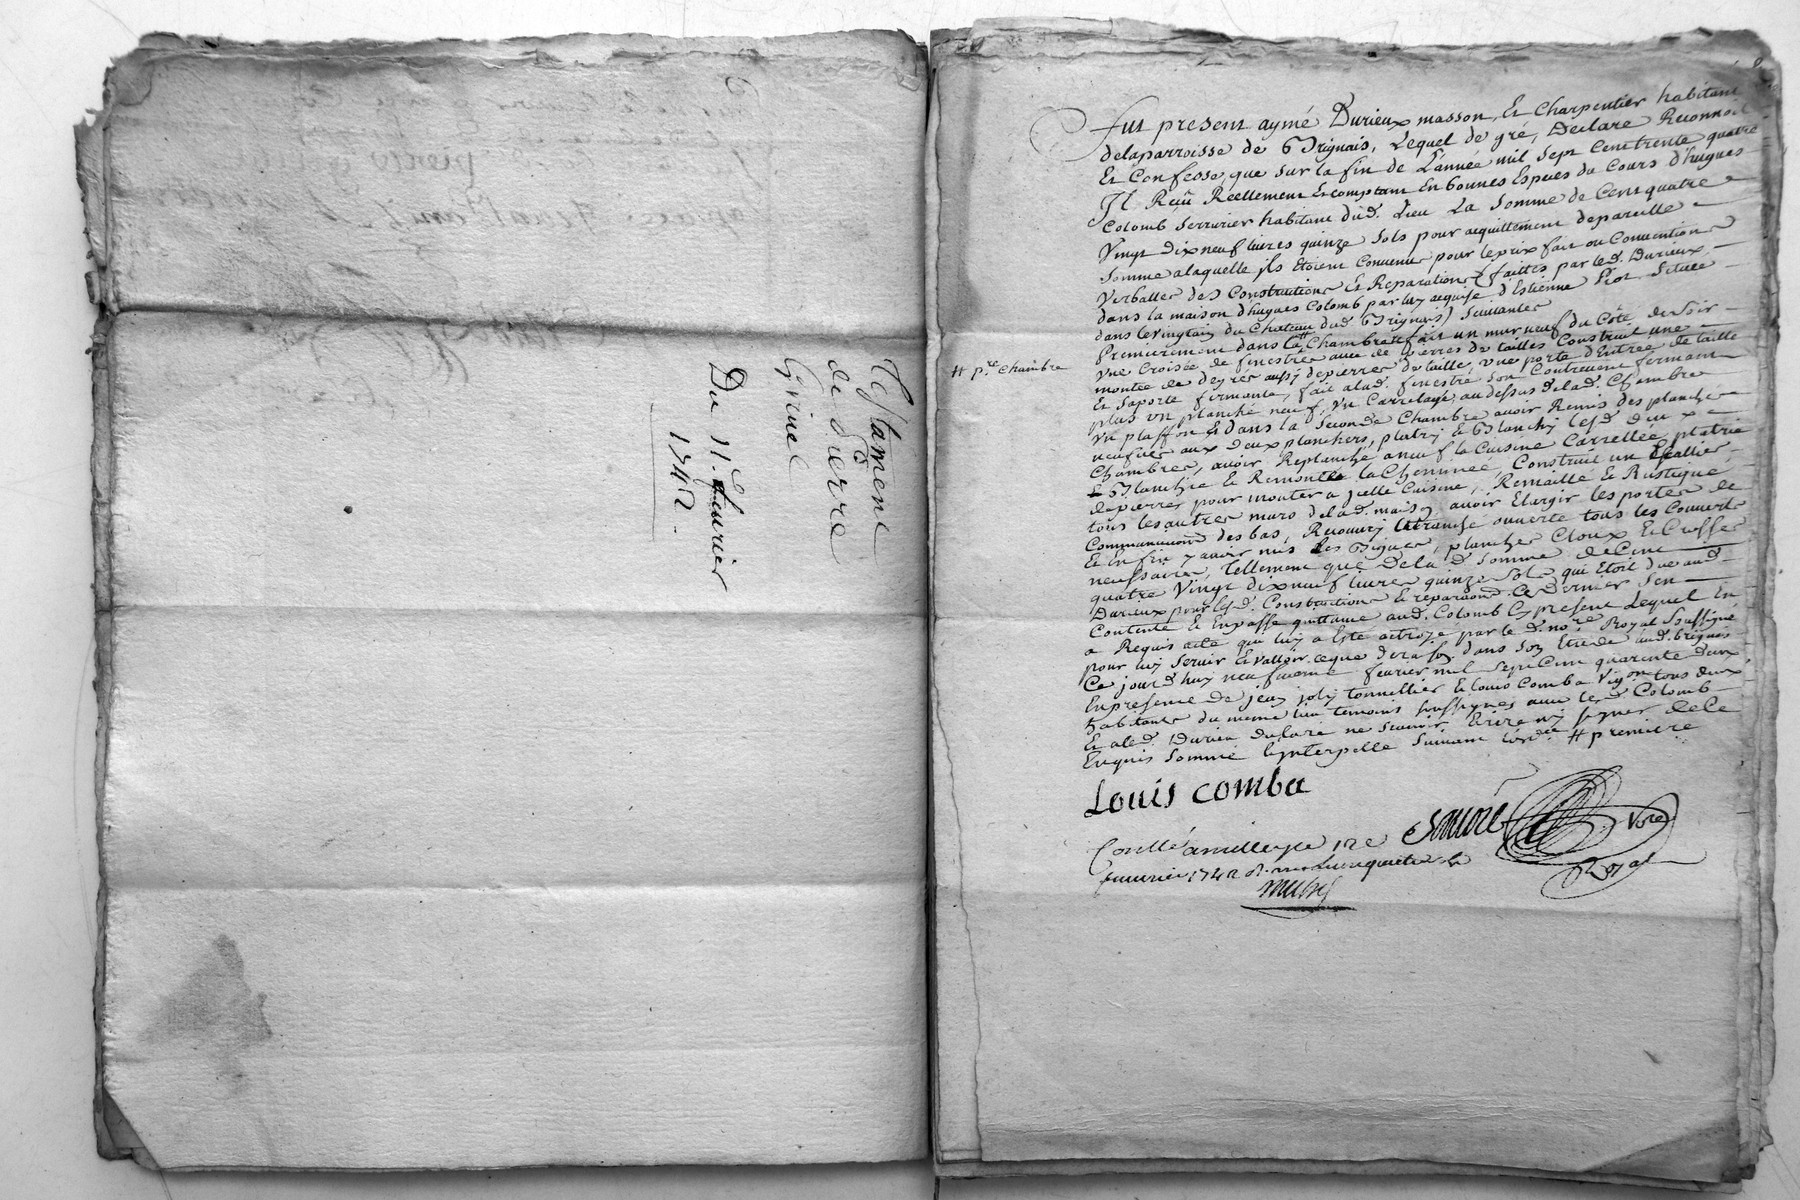 Testament
de Sr. Pierre
Grimel
Du 11e. feurier
1742.
fut present aymé Durieux masson, Et Charpentier habitant
delaparroisse de Brignais, Lequel de gré, Declare Reconnoit
Et Confesse, que sur la fin de L'année mil sept Centtrente quatre
Jl Reçû Reellement Etcomptant En bonnes Especes du Cours d'hugues
Colomb Serrurier habitant dud. Lieu La Somme de Centquatre
Vingt dixneuf liures quinze Sols pour acquittement depareille
Somme alaquelle jls Etoient Conuenus pour leprix fait ou Conuentions
Verballes des Constructions Et Reparations faittes par led. Durieux,
dans la maison d'hugues Colomb par luy acquise d'Estienne Piot Située
dans levingtain du Chateau dud. Brignais) Scauantes
Premierement dans la # Chambre fait un mur neuf du Côté de Soir
vne Croisée de finestre auec de pierres de tailles Construit une
montée de degrés aussy depierres de taille, vne porte d'Entrée de taille
Et Saporte fermante, fait alad. finestre son Contreuent fermant
# pre. Chambre
plus vn planché neuf, vn Carrelage, au dessus delad. Chambre
vn plaffon Et dans la Seconde Chambre auoir Remis des planches
neufues aux deux planchers, platry Et Blanchy lesd. deux
Chambres, auoir Replanché aneuf la Cuisine Carrellée, platrie
Et Blanchie Et Remontée la Cheminée, Construit un Escallier
depierres pour monter a jcelle Cuisine, Remaillé Et Rustiqué
tous les autres murs delad. maison, auoir Elargir les portes de
Communication des bas, Recouury Etranché ouuerte tous les Couuerts
Et En fin y auoir mis les Bigues, planches Cloux Et Crosses
necessaires, tellement que delad. Somme deCent
quatre Vingt dixneuf liures quinze Sols qui Etoit due aud.
Durieux pour lesd. Constructions Et reparaons. Ce Dernier Sen
Contente Et Enpasse quittance aud. Colomb Cy present Lequel En
a Requis acte qui luy a Esté octroyé par le d. nore. Royal Soussigné
pour luy Seruir Et valloir ceque deraison dans son Etude aud. brignais
Ce jourd'huy neufuieme feurier mil SeptCent quarente deux
Enpresence de jean joly tonnellier Et Louis Comba Vigon tous deux
habitants du meme lieu temoins soussignés auec led. Colomb
Et aled. Durieu declaré ne Scauoir Ecrire ny signer deCe
Enquis Sommé Et jnterpellé Suiuant lordce. # premiere
Louis comba
Nore
Royal
feurier 1742